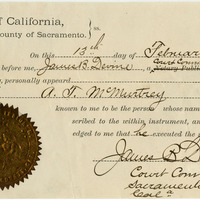 f California,
ounty of Sacramento. } ss
On this 13th day of Februar
before me, James B. Devine Court Comm
a Notary Publi
, personally appeared
A. F. McMurtrey
known to me to be the person whose nam
scribed to the within instrument, and
edged to me that he executed the
James B. D
Court Com
Sacramento
Cal a